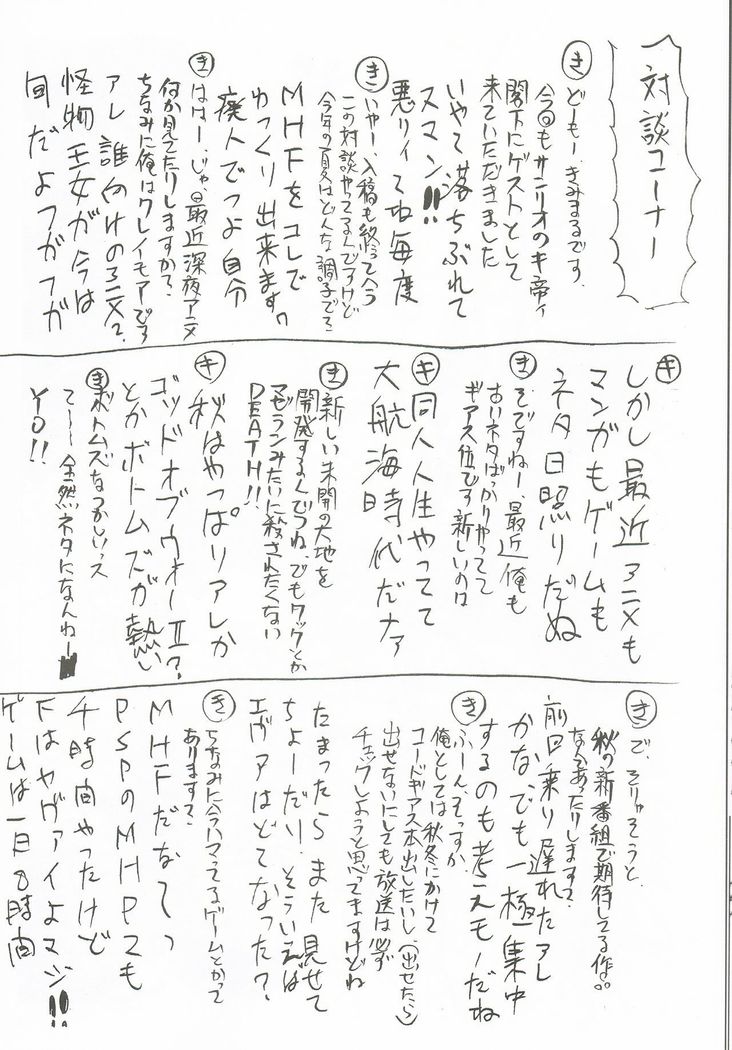 対談コーナー
き どーもー、きみまるです、
今回もサニリオのキ帝ィ
閣下にゲストとして
来ていただきました
いやて落ちぶれて
スマン!!
悪リィてね毎度
き いやー、入稿も終って今
この対談やってるんですけど
今年の夏はどんな調子でス?
MHFをコレで
ゆっくり出来ますワ
廃人でっよ自分
き ははー、じゃ、最近深夜アニメ
何か見てたりしますか?
ちなみに俺はクレイモアでス
アレ誰向けのアニメ?
怪物王女が今は
旬だよフガフガ
キ しかし最近アニメも
マンガもゲームも
ネタ日照りだぬ
き そですねー、最近俺も
古いネタばっかりやってて
ギアス位です新しいのは
キ 同人人生やってて
大航海時代だナァ
き 新しい未開の大地を
開発するんでつね、でもクックとか
マゼランみたいに殺されたくない
DEATH!!
キ 秋はやっぱリアレか
ゴッドオブウォーⅡ?
とかボトムズが熱い
き ボトムズなつかしいっス
てーー全然ネタになんねー
YO!!
き で、そりゃそうと、
秋の新番組で期待してる作品
なんてあったりします?
前回乗り遅れたアレ
かな、でも一極集中
するのも考えモノだね
き ふーん、そっすか、
俺としては秋冬にかけて
コードギアス本出したいし(出せたら)
出せないにしても放送は必ず
チェックしようと思ってますけどね
たまったらまた見せて
ちょーだい!そういえば
エヴァはどてなった?
き ちなみに今ハマってるゲームとかって
あります?
MHFだなてっ
PSPのMHP2も
千時間やったけど
Fはヤヴァイよマジ!!
ゲームは一日8時間